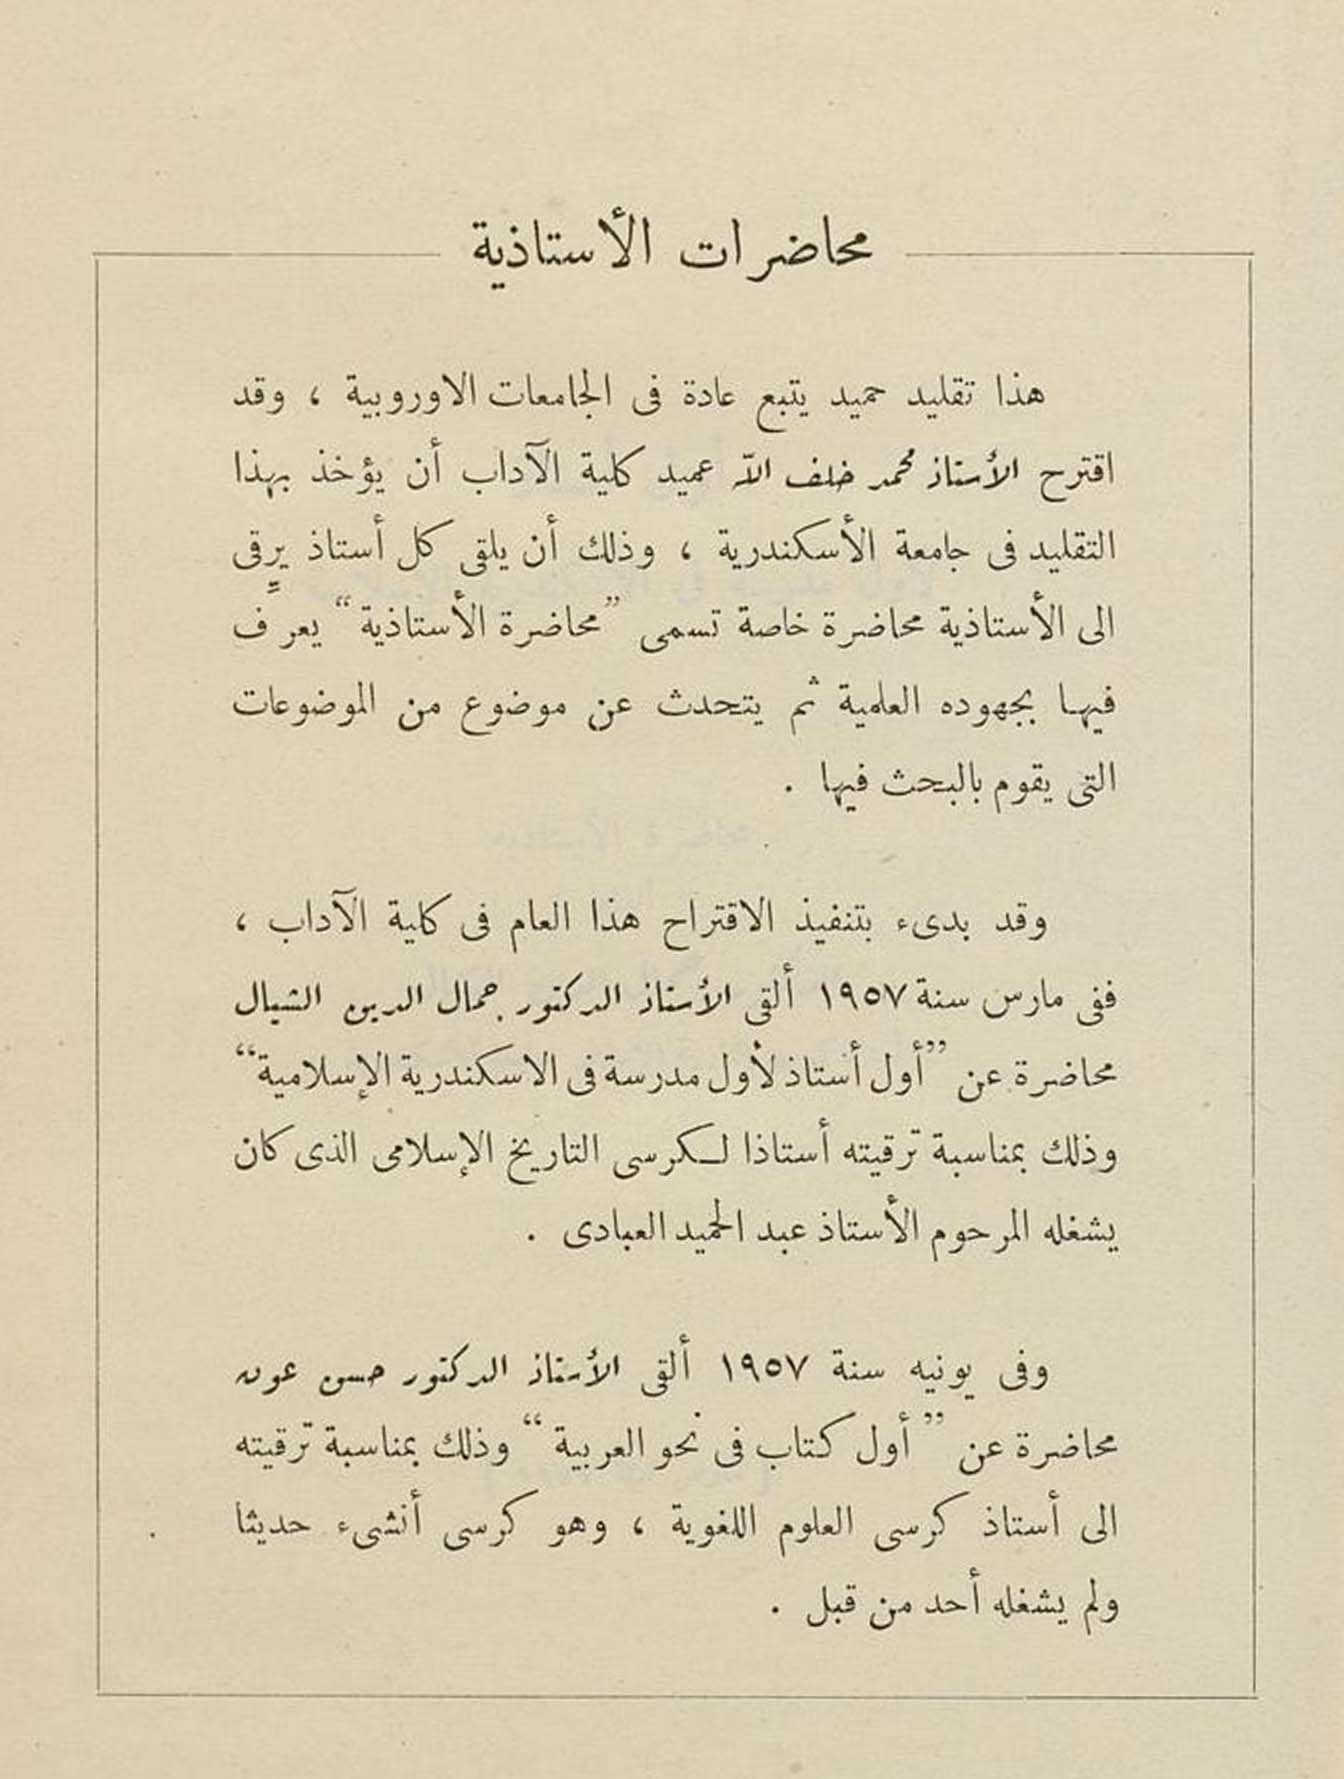 محاضرات الأستاذية
هذا تقليد حميد يتبع عادة فى الجامعات الاوروبية ، وقد
اقترح الأستاذ محمد خلف الله عميد كلية الآداب أن يؤخذ بهذا
التقليد فى جامعة الأسكندرية ، وذلك أن يلقى كل أستاذ يرقى
الى الأستاذية محاضرة خاصة تسمى ”محاضرة الأستاذية“ يعرّف
فيها بجهوده العلمية ثم يتحدث عن موضوع من الموضوعات
التى يقوم بالبحث فيها .
وقد بدىء بتنفيذ الاقتراح هذا العام فى كلية الآداب ،
ففى مارس سنة ١٩٥٧ ألقى الأستاذ الدكتور جمال الدين الشيال
محاضرة عن ”أول أستاذ لأول مدرسة فى الاسكندرية الإسلامية“
وذلك بمناسبة ترقيته أستاذا لكرسى التاريخ الإسلامى الذى كان
يشغله المرحوم الأستاذ عبد الحميد العبادى .
وفى يونيه سنة ١٩٥٧ ألقى الأستاذ الدكتور حسن عون
محاضرة عن ” أول كتاب فى نحو العربية “ وذلك بمناسبة ترقيته
الى أستاذ كرسى العلوم اللغوية ، وهو كرسى أنشىء حديثا
ولم يشغله أحد من قبل .